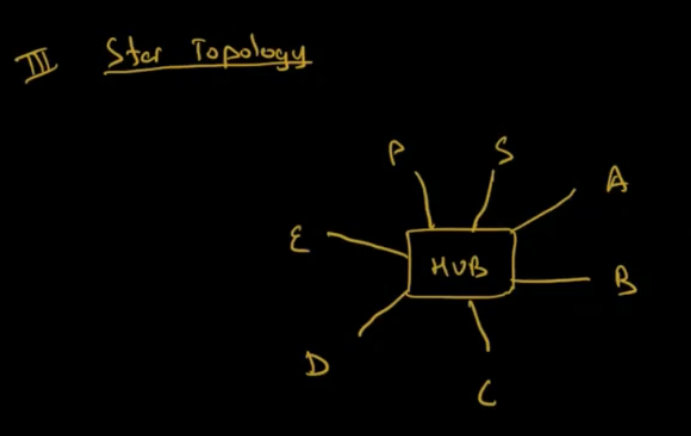 III Star Topology
P
S
A
E
HUB
B
D
C